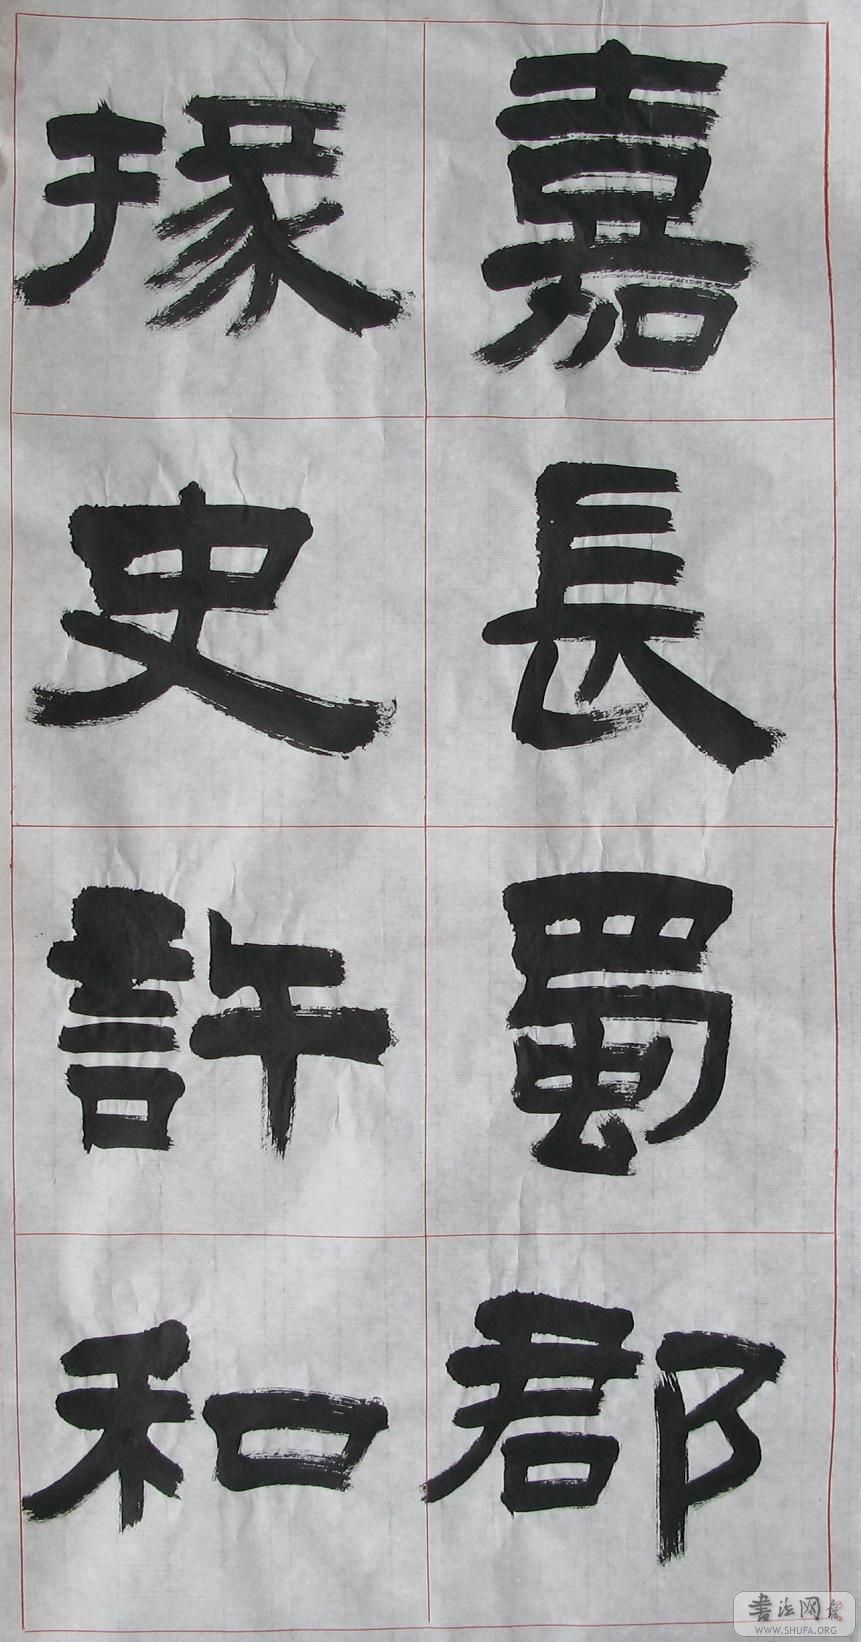 嘉長蜀郡
掾史許和
書法网
WWW.SHUFA.ORG